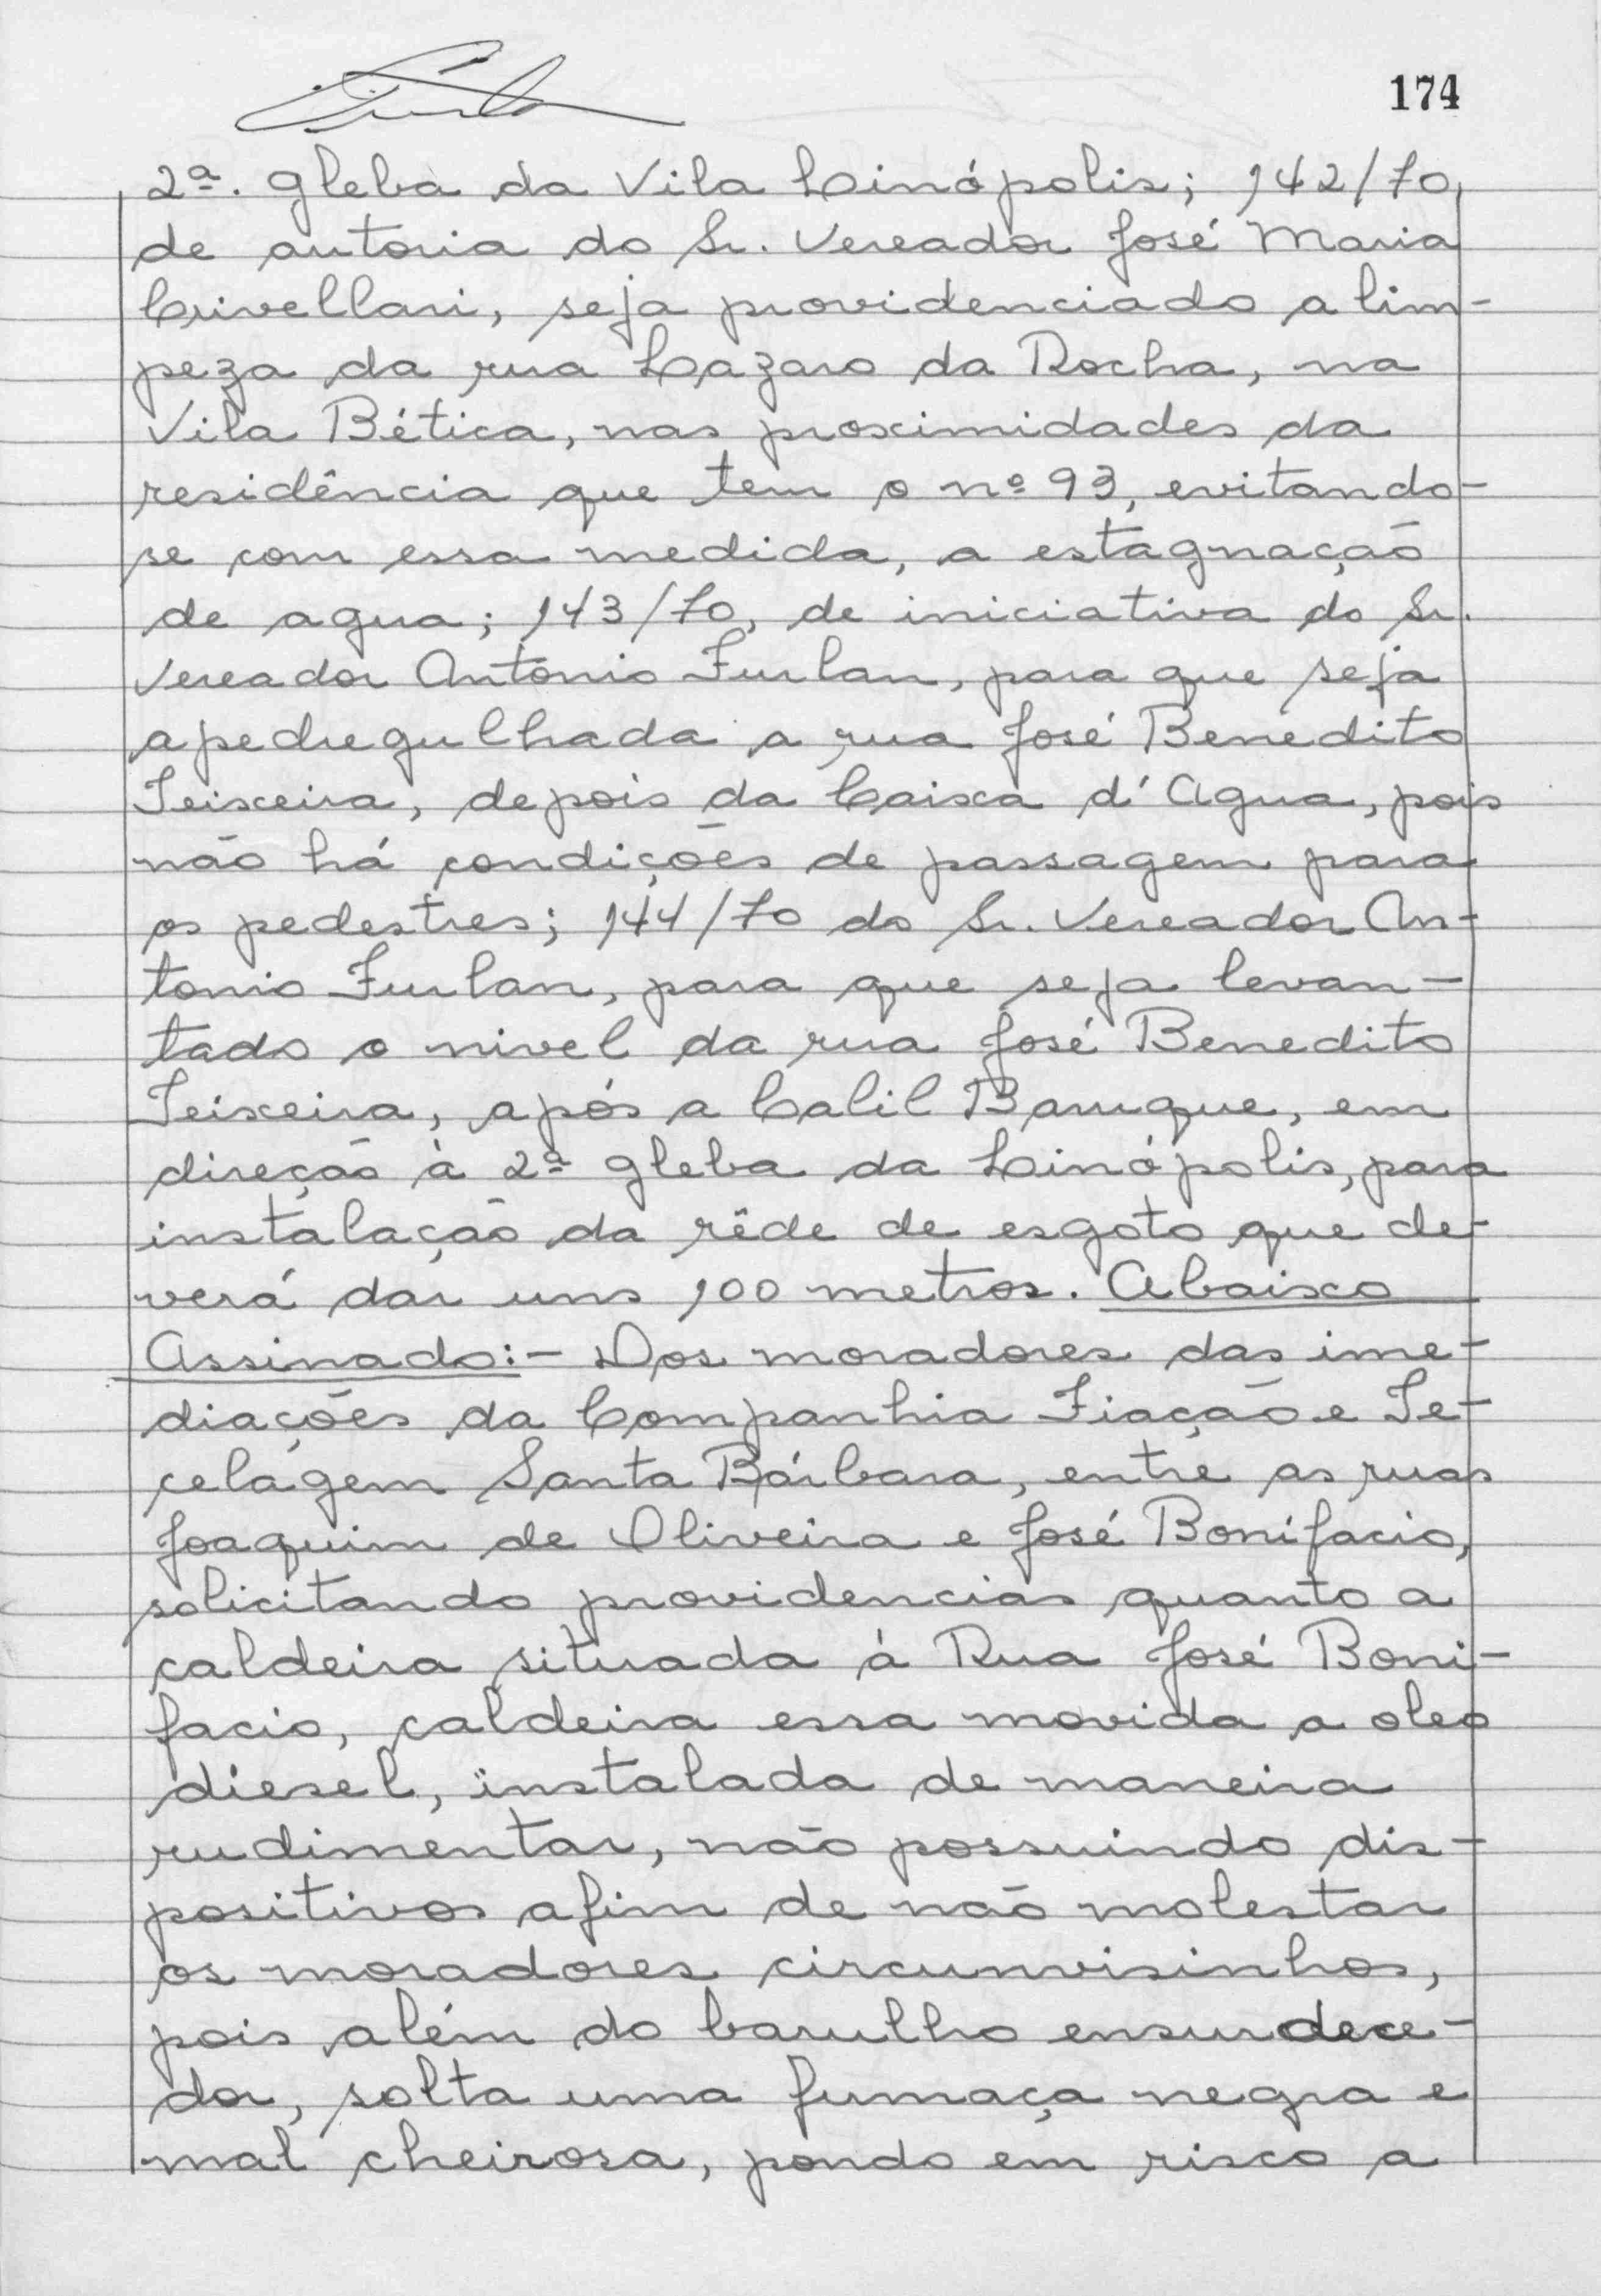 174
2ª. gleba da Vila Linópolis; 142/70,
de autoria do Sr. Vereador José Maria
Crivellari, seja providenciado a lim-
peza da rua Lazaro da Rocha, na
Vila Bética, nas proximidades da
residência que tem o nº 93, evitando-
se com essa medida, a estagnação
de agua; 143/70, de iniciativa do Sr.
Vereador Antonio Furlan, para que seja
apedregulhada a rua José Benedito
Teixeira, depois da Caixa d'Agua, pois
não há condições de passagem para
os pedestres; 144/70 do Sr. Vereador An-
tonio Furlan, para que seja levan-
tado o nivel da rua José Benedito
Teixeira, após a Calil Baruque, em
direção à 2ª gleba da Linópolis, para
instalação da rêde de esgoto que de-
verá dar uns 100 metros. Abaixo
Assinado:- Dos moradores das ime-
diações da Companhia Fiação e Te-
celagem Santa Bárbara, entre as ruas
Joaquim de Oliveira e José Bonifacio,
solicitando providencias quanto a
caldeira situada à Rua José Boni-
facio, caldeira essa movida a oleo
diesel, instalada de maneira
rudimentar, não possuindo dis-
positivos afim de não molestar
os moradores circunvisinhos,
pois além do barulho ensurdece-
dor, solta uma fumaça negra e
mal cheirosa, pondo em risco a